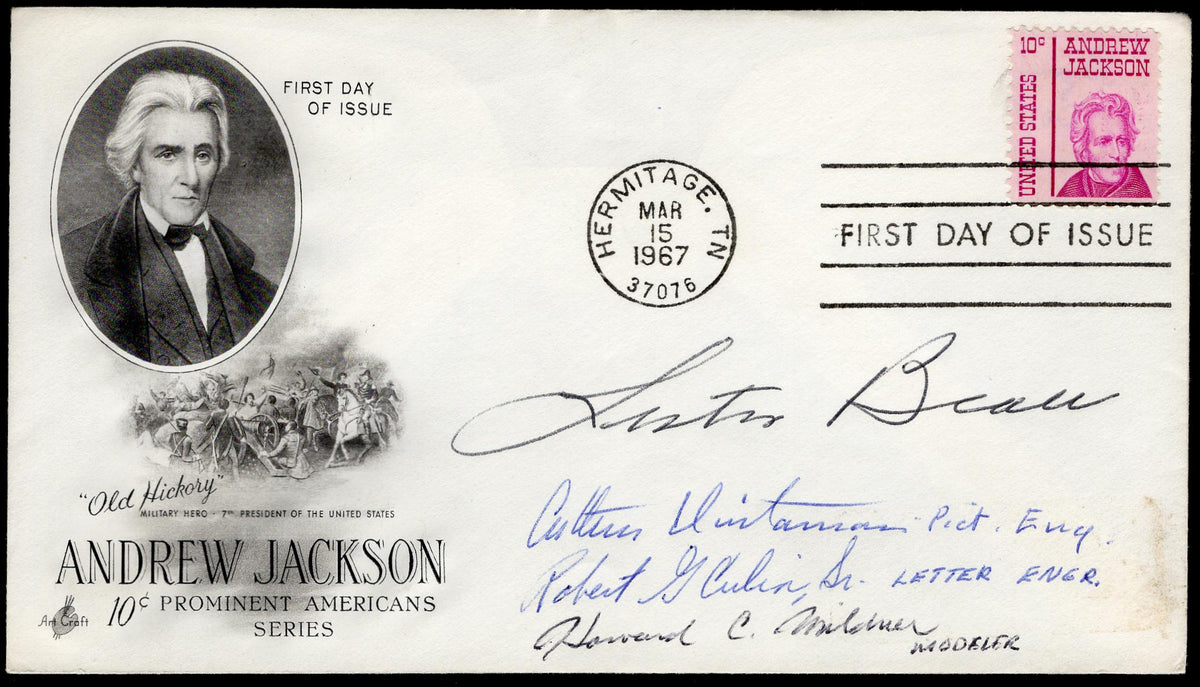 FIRST DAY
OF ISSUE
10¢ ANDREW
JACKSON
UNITED STATES
HERMITAGE. TN
MAR
15
1967
37076
FIRST DAY OF ISSUE
Lester Beall
"Old Hickory"
MILITARY HERO - 7TH PRESIDENT OF THE UNITED STATES
ANDREW JACKSON
10¢ PROMINENT AMERICANS
SERIES
Art Craft
Arthur Dintaman Pict. Eng.
Robert G Culin, Sr. LETTER ENGR.
Howard C. Mildner
MODELER